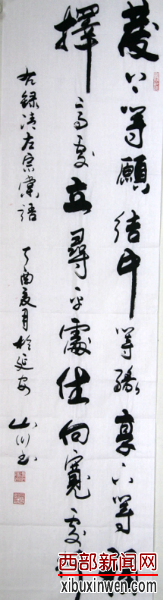 發上等願结中等緣享下等福
擇高处立尋平處住向寬处行
右錄清左宗棠語 丁酉夏月於延安 山川书
西部新闻网
xibuxinwen.com